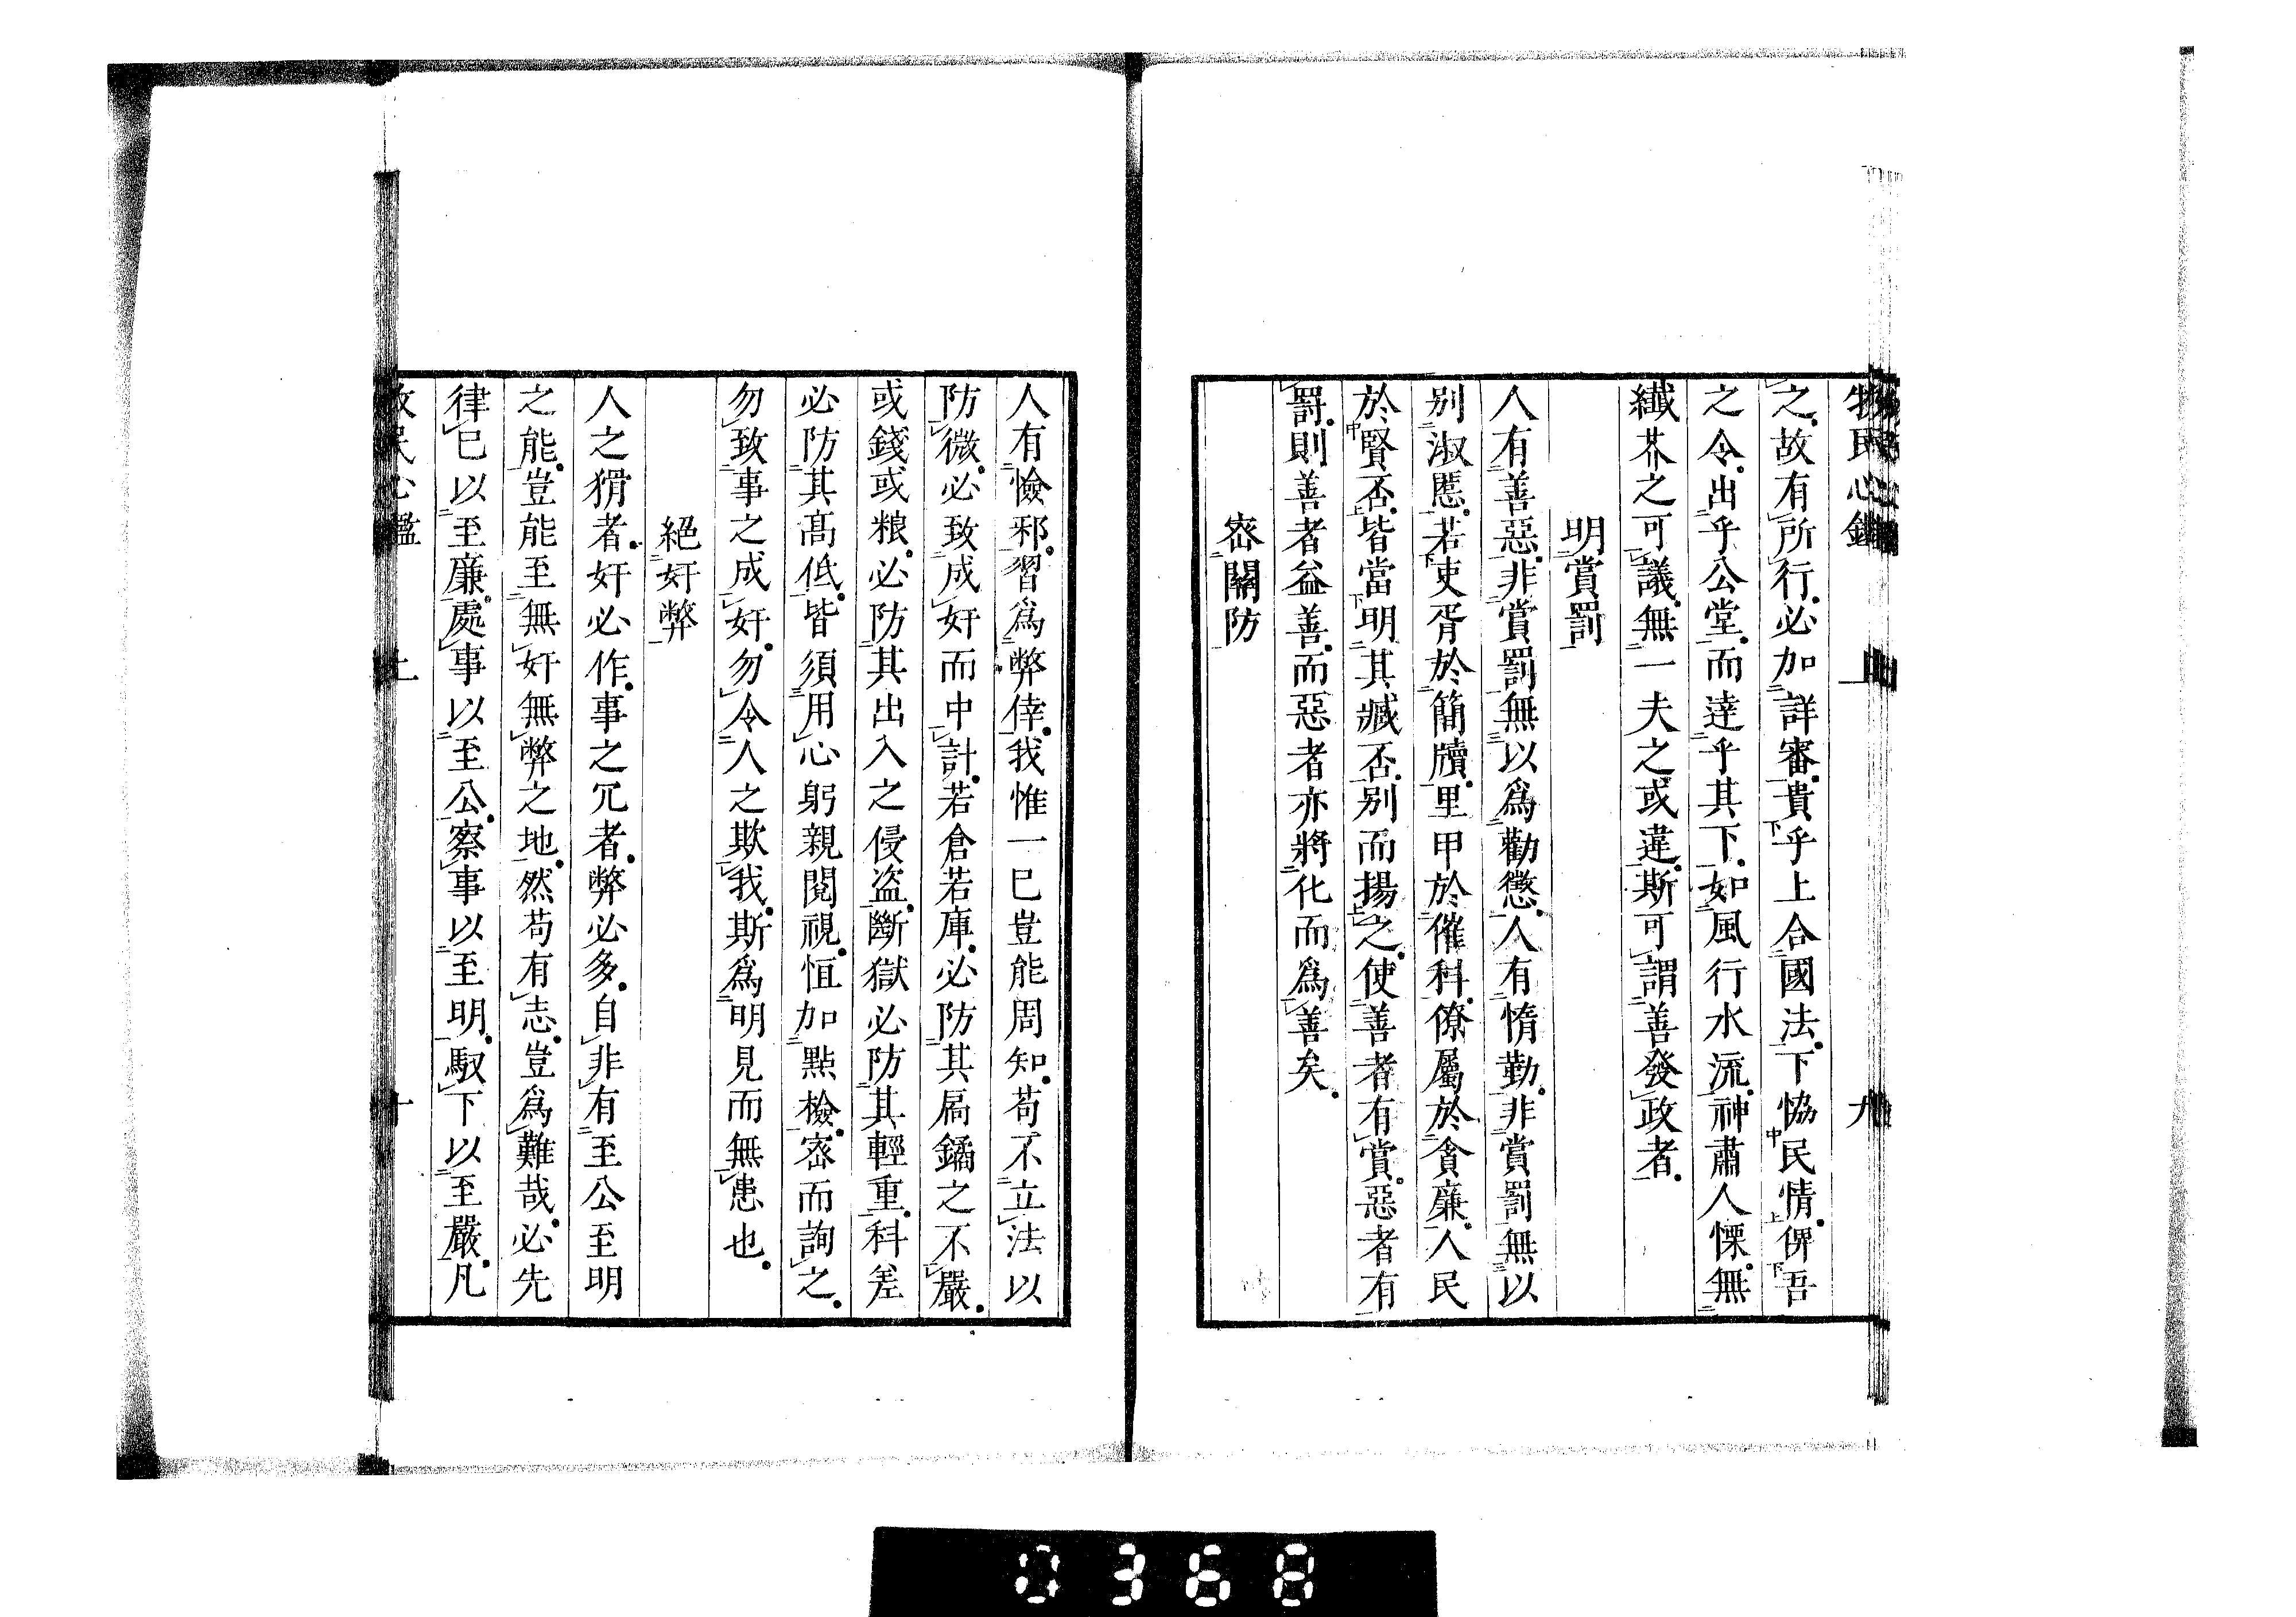 牧民心鑑　上　九
之故有所行必加詳審貴乎上合國法下恊民情俾吾
之令出乎公堂而達乎其下如風行水流神肅人慄無
纖芥之可議無一夫之或違斯可謂善發政者
明賞罰
人有善惡非賞罰無以爲勸懲人有惰勤非賞罰無以
别淑慝若吏胥於簡牘里甲於催科僚屬於貪廉人民
於賢否皆當明其臧否别而揚之使善者有賞惡者有
罰則善者益善而惡者亦將化而爲善矣
宻關防
人有憸邪習爲弊倖我惟一已豈能周知苟不立法以
防微必致成奸而中計若倉若庫必防其扃鐍之不嚴
或錢或粮必防其出入之侵盗斷獄必防其輕重科差
必防其髙低皆須用心躬親閱視恒加㸃檢宻而詢之
勿致事之成奸勿令人之欺我斯爲明見而無患也
絕奸弊
人之猾者奸必作事之冗者弊必多自非有至公至明
之能豈能至無奸無弊之地然苟有志豈爲難哉必先
律已以至廉處事以至公察事以至明馭下以至嚴凡
牧民心鑑　上　十
0368